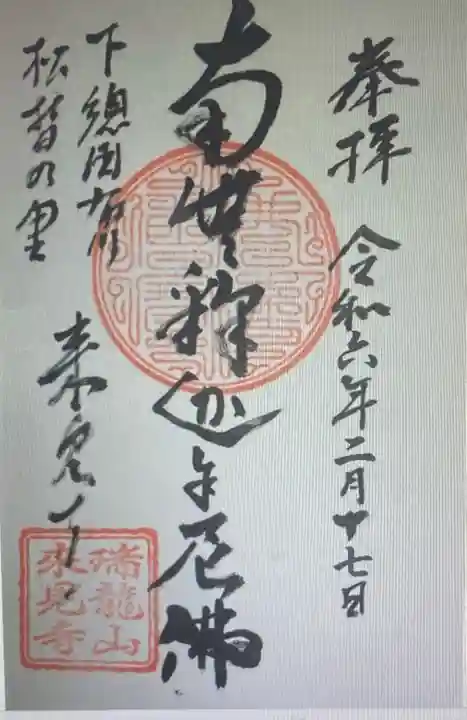 奉拝
令和六年二月十七日
南無釋迦牟尼佛
下總国布川
松替の里
来見寺
瑞龍山
来見寺